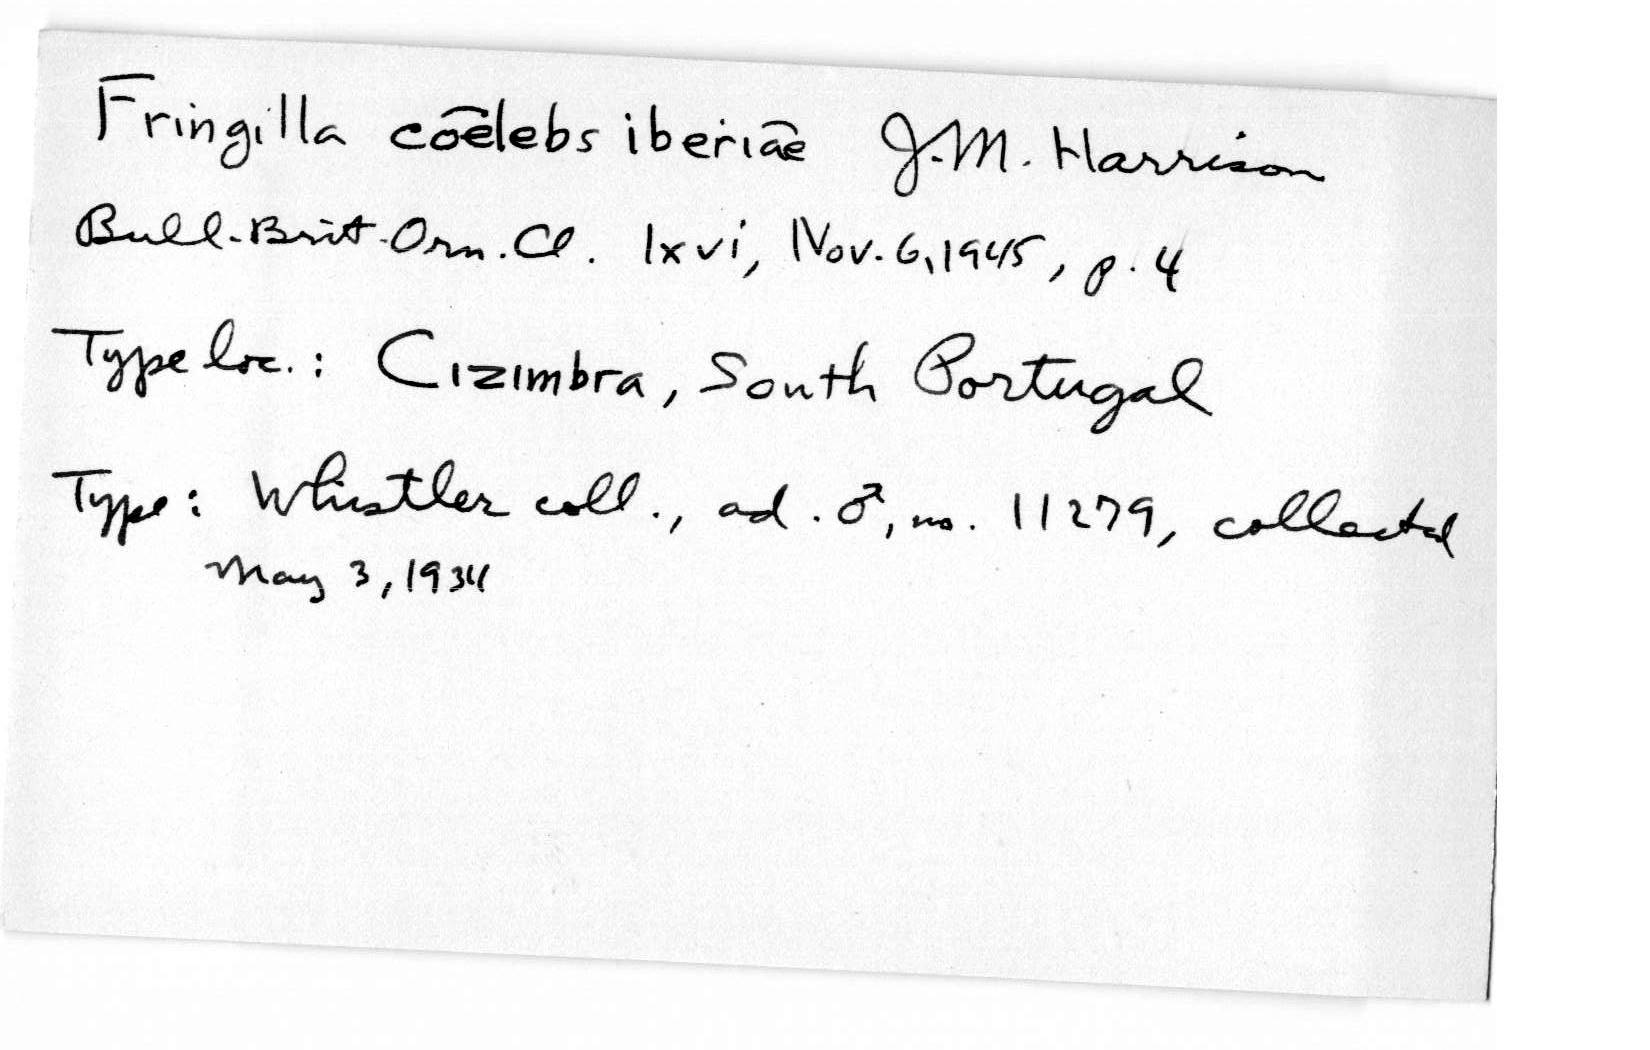 Fringilla cœlebs iberiæ J.M. Harrison
Bull. Brit. Orn. Cl. lxvi, Nov. 6, 1945, p. 4
Type loc.: Cizimbra, South Portugal
Type: Whistler coll., ad. ♂, no. 11279, collected
May 3, 1934